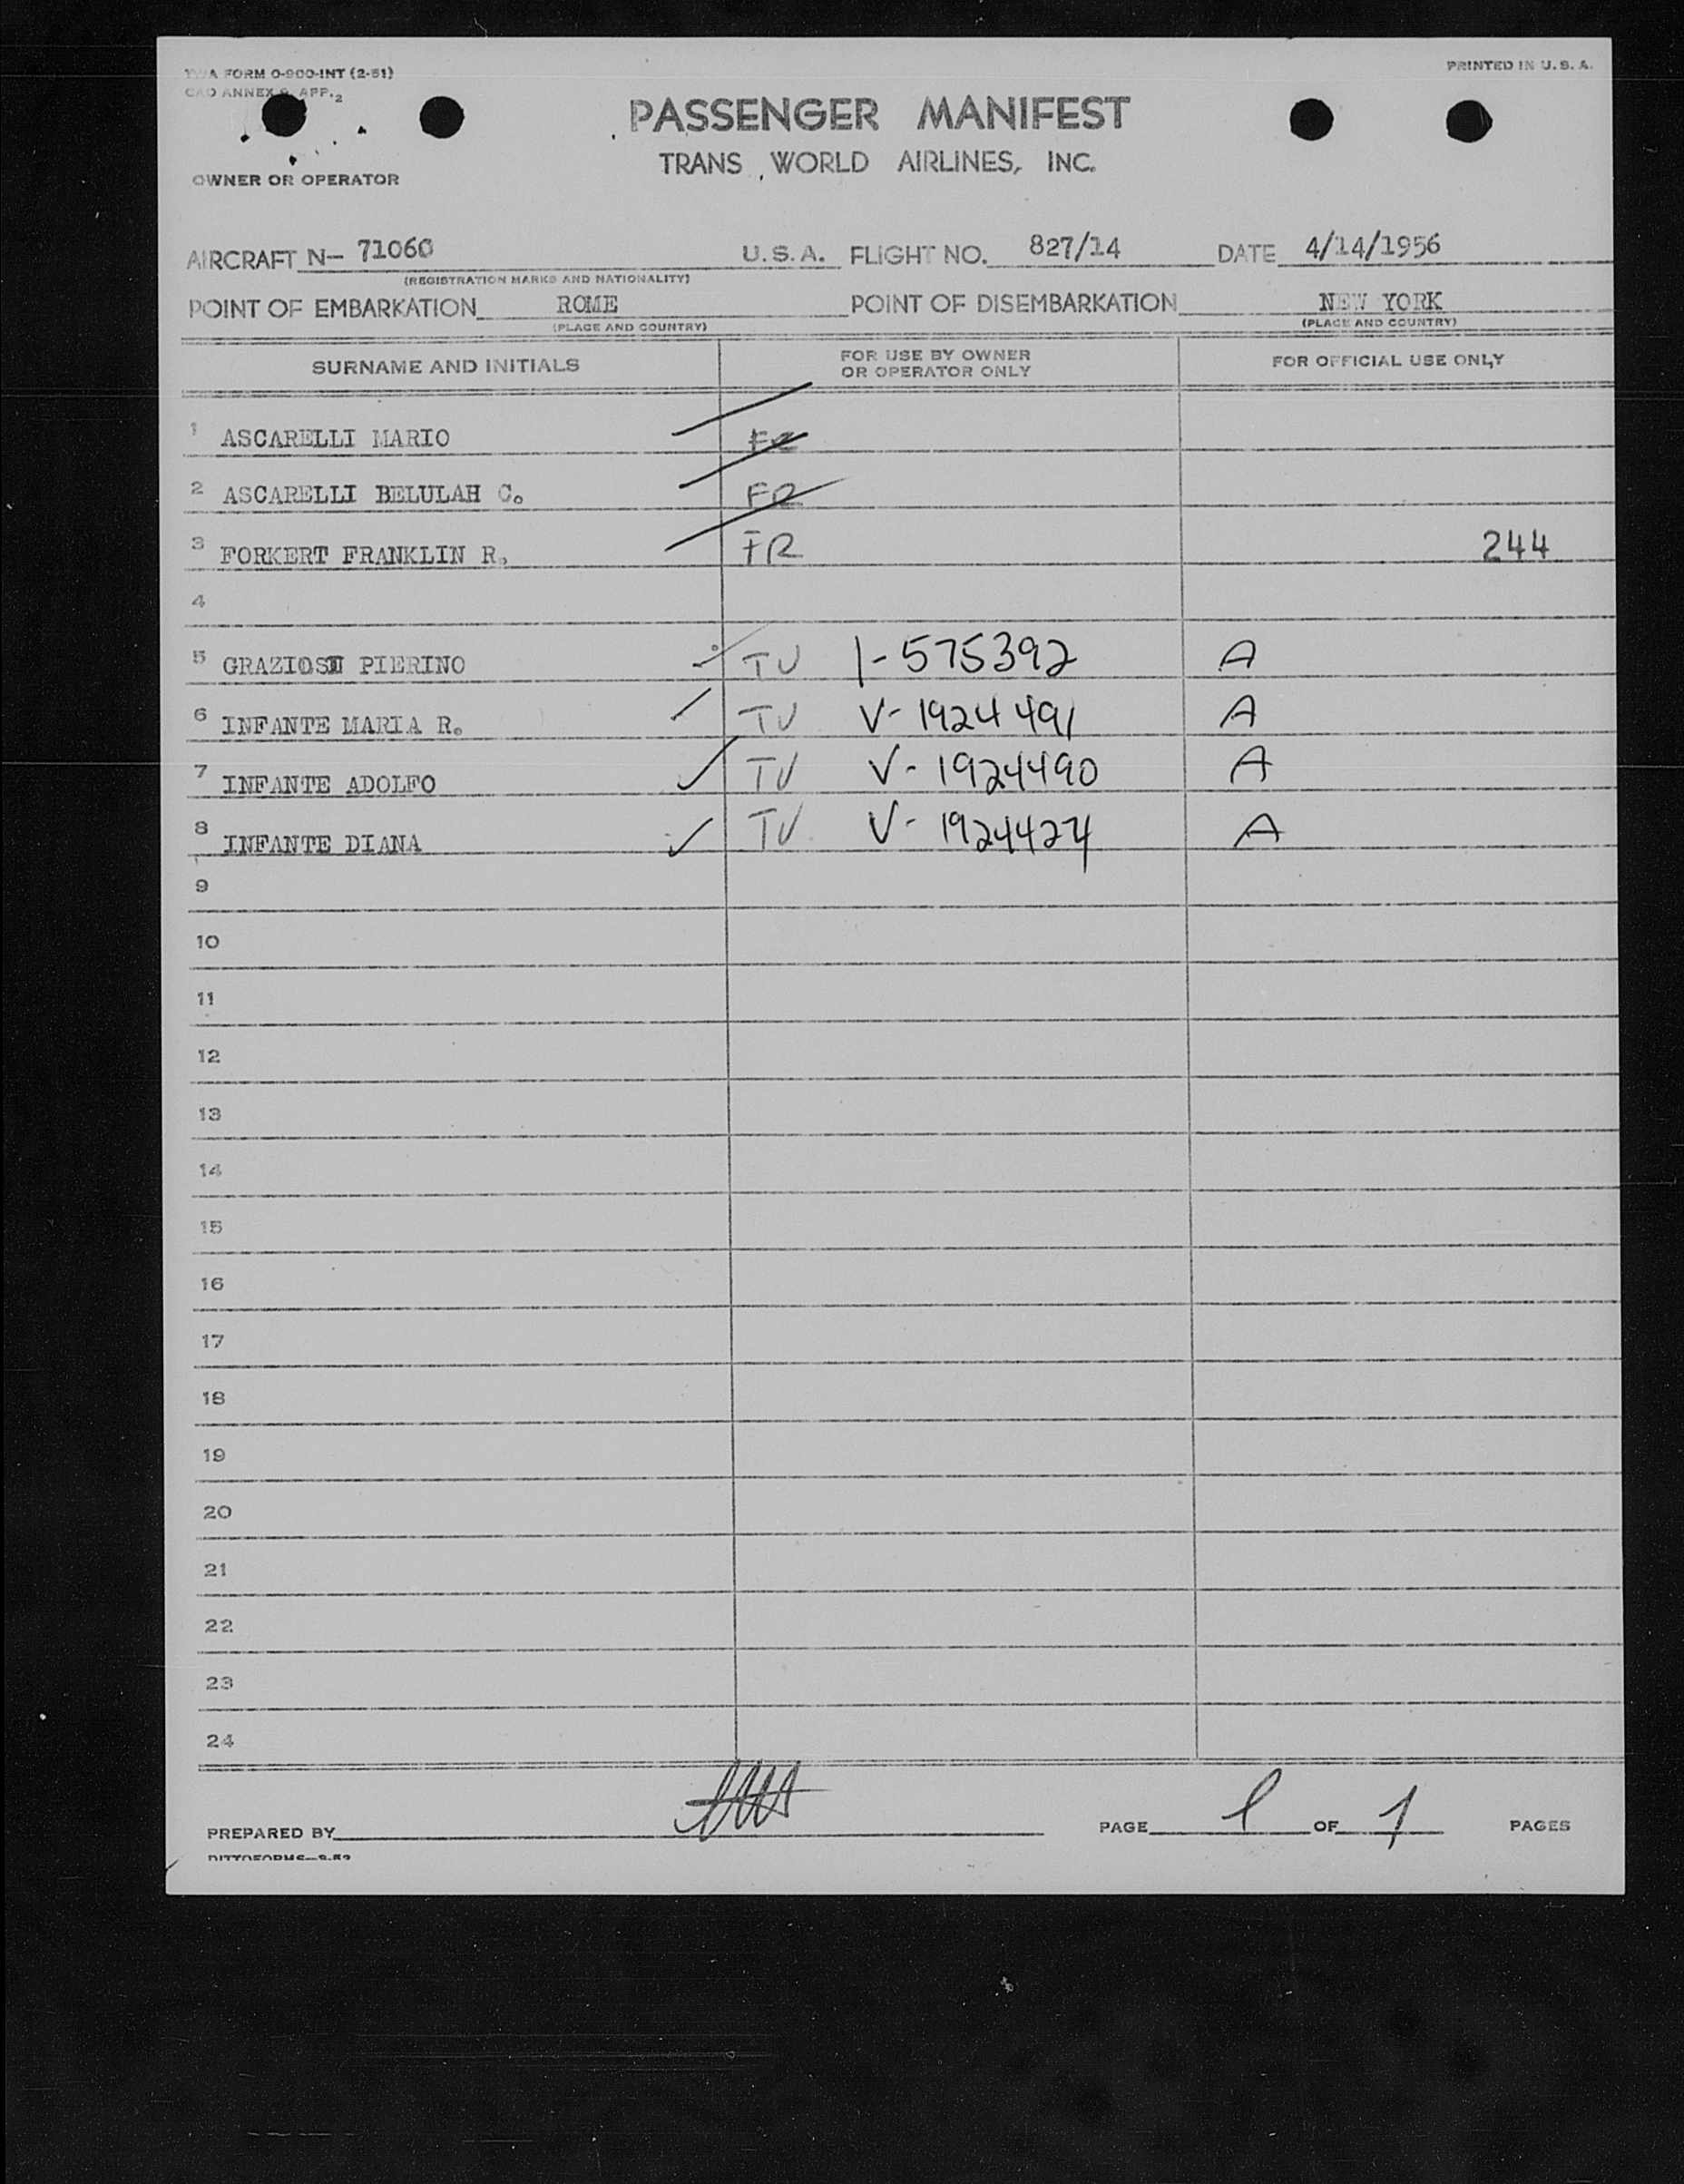 TWA FORM 0-900-INT (2-51)
PRINTED IN U. S. A.
CAO ANNEX 9, APP. 2
PASSENGER MANIFEST
TRANS WORLD AIRLINES, INC.
OWNER OR OPERATOR
AIRCRAFT N- 71060 U.S.A. FLIGHT NO. 827/14 DATE 4/14/1956
(REGISTRATION MARKS AND NATIONALITY)
POINT OF EMBARKATION ROME POINT OF DISEMBARKATION NEW YORK
(PLACE AND COUNTRY) (PLACE AND COUNTRY)
SURNAME AND INITIALS FOR USE BY OWNER OR OPERATOR ONLY FOR OFFICIAL USE ONLY
1 ASCARELLI MARIO FR
2 ASCARELLI BELULAH C. FR
3 FORKERT FRANKLIN R. FR 244
4
5 GRAZIOSI PIERINO TU 1-575392 A
6 INFANTE MARIA R. TU V-1924491 A
7 INFANTE ADOLFO TU V-1924490 A
8 INFANTE DIANA TU V-1924424 A
9
10
11
12
13
14
15
16
17
18
19
20
21
22
23
24
PREPARED BY PAGE 1 OF 1 PAGES
DITTOFORMS-9-52